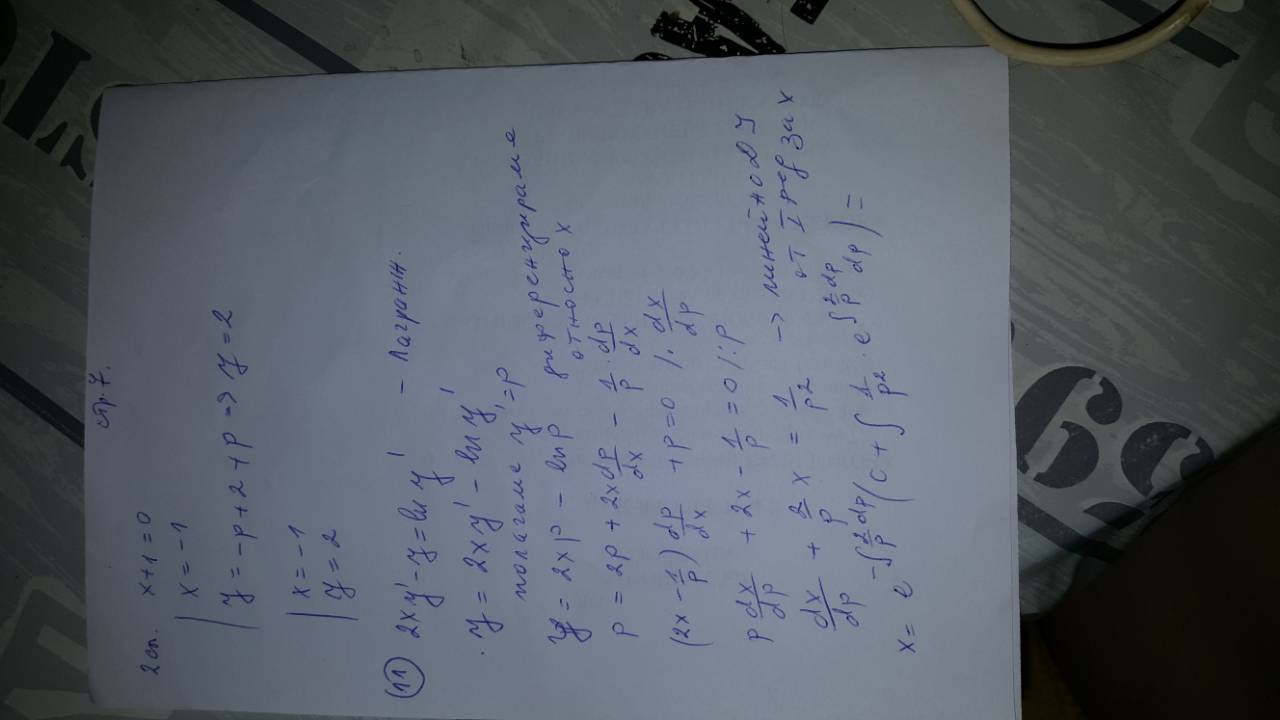 стр. 7.
2сл. x+1=0
x = -1
y = -p+2+p => y = 2
x = -1
y = 2
11 2xy' - y = ln y' - Лагранж.
y = 2xy' - ln y'
полагаме y' = p
y = 2xp - ln p диференцираме
относно x
p = 2p + 2x dp/dx - 1/p · dp/dx
(2x - 1/p) dp/dx + p = 0 /· dx/dp
p dx/dp + 2x - 1/p = 0 /:p
dx/dp + 2/p x = 1/p² -> линейно ДУ
от I ред за x
x = e^(-∫ 2/p dp) (c + ∫ 1/p² · e^(∫ 2/p dp) dp) =